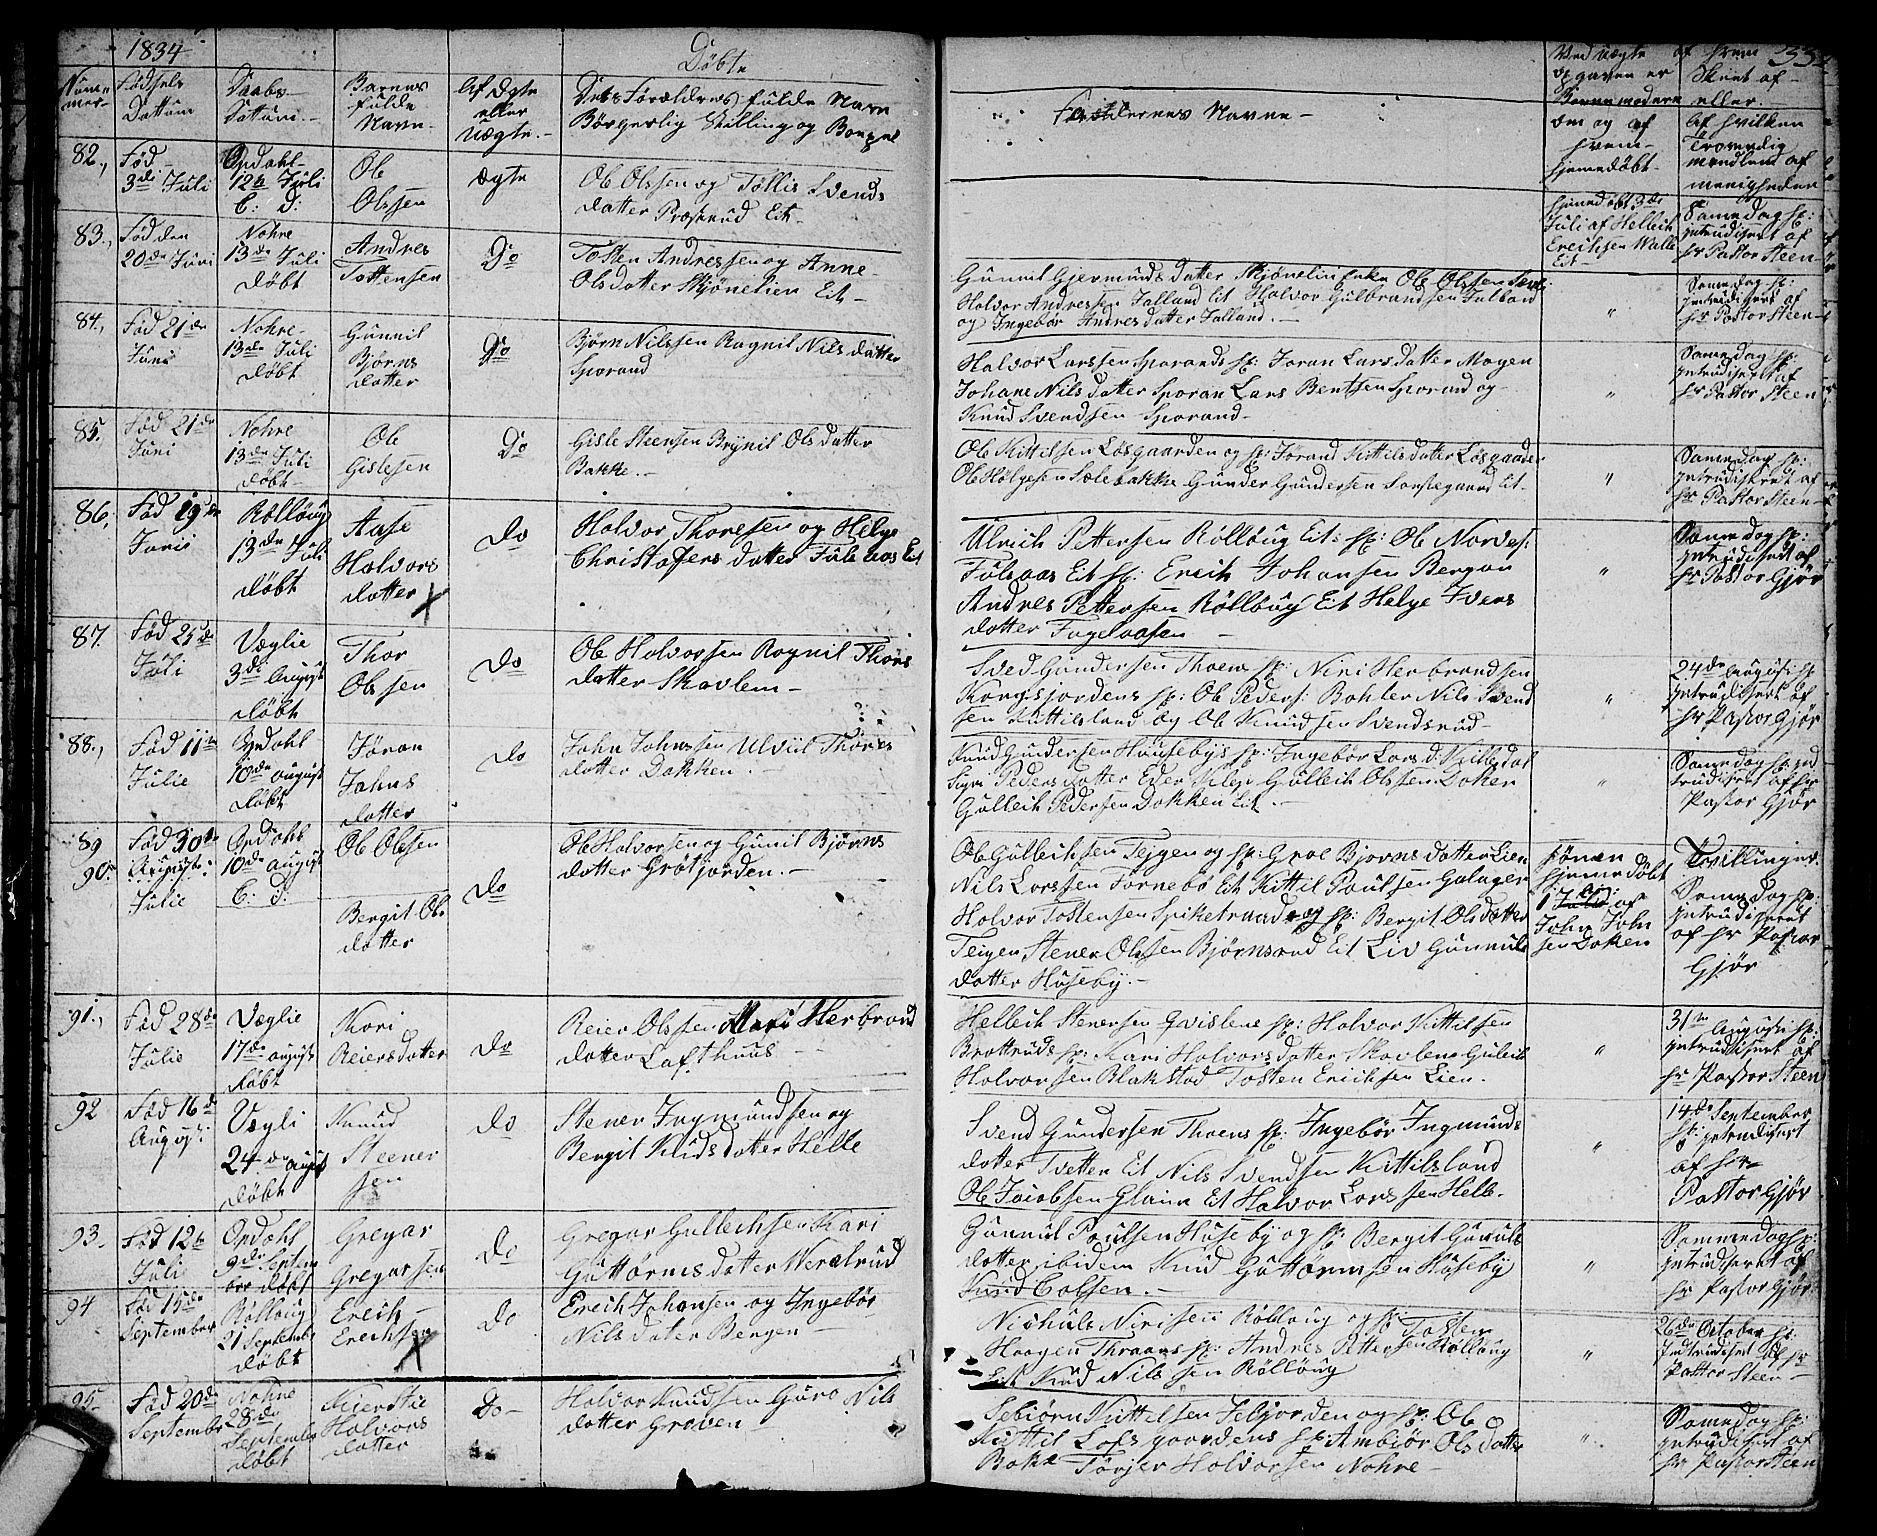 1834
Døbte
Num-
mer.
Fødsels
Dattum
Daabs
Dattum.
Barnets
fulde
Navn.
Af Ægte
eller
Uægte.
Dets Forældres fulde Navn
Børgerlig Stilling og Boepæl
Faddernes Navne
Ved uægte
opgaven er
Barnemoderen
om og af
hvem
hjemedøbt.
af hvem
Skeet af
eller
Af hvilken
Troverdig
mand
menigheden
82.,
Fød
3di Juli
Opdahl
12te Juli
C: d:
Ole
Olssen
Ægte
Ole Olssen og Tøllis Svends
datter Præstrud Eit
hjemedøbt 3de
Juli af Hellech
Erichsen Walle
Eit
Samedag sp:
intrudisert af
hr Pastor Steen
83.,
Fød den
20de Juni
Nohre
13de Juli
døbt
Andres
Tostensen
Do
Tosten Andressen og Anne
Olsdatter Skjønelien Eit
Gunnil Gjermunds datter Skjønelin Enke Ole Olssen
Halvor Andressen Falland Eit Halvor Gulbrandsen Falland
og Ingebør Andresdatter Falland.
"
Samedag sp:
intrudisert af
hr Pastor Steen
84.,
Fød 21de
Juni
Nohre
13de Juli
døbt
Gunnil
Bjørns
datter
Do
Bjørn Nilssen Ragnil Nilsdatter
Sporand
Halvor Larssen Sporands sp: Joran Larsdatter Mogen
Johane Nilsdatter Sporan Lars Bentsen Sporand og
Knud Svendsen Sporand
"
Samedag sp:
intrudisert af
hr Pastor Steen
85.
Fød 21de
Juni
Nohre
13de Juli
døbt
Ole
Gislesen
Do
Gisle Steensen Brynil Olsdatter
Bakke.
Ole Kittilsen Losgaarden og sp: Jørand Kittilsdatter Losgaarden
Ole Helgesen Solebakke Gunder Gundersen Eit.
"
Samedag sp:
intrudisert af
hr Pastor Steen
86,
Fød 19de
Junii
Rolloug
13de Juli
døbt
Aase
Halvors
datter X
Do
Halvor Thoresen og Helge
Christofers datter Fulsaas Eit
Ulrich Pettersen Rølloug Eit: sp: Ole
Fulsaas Eit sp: Erich Johansen Bergan
Andres Pettersen Rølloug Eit Helge Ivers
datter Fugelaasen
"
Samedag sp:
intrudisert af
hr Pastor Gjør
87.
Fød 25de
Juli
Væglie
3di August
døbt
Thor
Olssen
Do
Ole Halvorssen Ragnil Thors
datter Skavlem
Sved Gundersen Thoens sp: Niri Herbrandsen
Kongsjordens sp: Ole Peders: Bahler Nils Svend
sen Kittilsland og Ole Knudsen Svendsrud
"
24de August sp
intrudisert af
hr Pastor Gjør
88.,
Fød 11te
Julie
Opdahl
10de August
døbt
Jøran
Johns
datter
Do
John Johnssen Ulviil Thores
datter Dokken.
Knud Gundersen Housebys sp: Ingebør Lars d:
Sigri Pedersdatter Gulleik Olssen Doken
Gulleik Pedersen Dokken Eit.
"
Samedag sp: in
trudisert af hr
Pastor Gjør
89
90.
Fød 30te
August:
Julie
Opdahl
10de August
C: d:
Ole Olssen
Bergit Ols
datter
Do
Ole Halvorsen og Gunil Bjørns
datter Grøtjorden.
Ole Gulleichsen Tejgen og sp: Groe Bjørns datter Lien
Nils Larssen Førnebø Eit Kittil Poulsen Galager
Halvor Tostensen Spiketraad og sp: Bergit Olsdatter
Teigen Stener Olssen Bjørnsrud Eit Liv Gunnuls
datter Huseby.
hjemedøbt
1 af
John John
sen Doken
Tvillinger.
Samedag sp:
intrudisert
af hr Pastor
Gjør
91.,
Fød 28de
Julie
Væglie
17de August
døbt
Kari
Reiersdatter
Do
Reier Olssen Mari Herbrand
datter Lofthuus
Helleik Stenersen Qvislene sp: Halvor Kittilsen
Brottruds sp: Kari Halvorsdatter Skovlene Guleik
Halvorsen Blakstad Tosten Erichsen Lien.
"
31te August sp:
intrudisert af
hr Pastor Steen
92
Fød 16de
August
Vegli
24de August
døbt
Knud
Steener
sen
Do
Stener Ingmundsen og
Bergit Knudsdatter Helle
Svend Gundersen Thoens sp: Ingebør Ingmunds
datter Tvetten Eit Nils Svendsen Kittilsland
Ole Jacobsen Glaim Eit Halvor Larssen Helle.
"
14de September
sp: intrudisert
af hr
Pastor Gjør
93.
Fød 12te
Julii
Opdahl
9de Septem
ber døbt
Gregar
Gregarssen
Do
Gregar Gulleichsen Kari
Guttormsdatter Neralrud
Gunnul Poulsen Huseby og sp: Bergit Gunnuls
datter ibidem Knud Guttormsen Huseby
Knud Colsen.
"
Sammedag sp:
intrudisert af
hr Pastor Gjør
94
Fød 15de
September
Rølloug
21 September
døbt
Erich
Erichsen X
Do
Erich Johansen og Ingebør
Nilsdater Bergen
Nichuls Nirisen Rølloug og sp: Tosten
Haagen Thraans sp: Andres Pettersen Rølloug
Eit Knud Nilssen Rølloug
"
26de October sp:
intrudisert af hr
Pastor Steen
95
Fød 20de
September
Nohre
28de
September
døbt
Kierstie
Halvors
datter
Do
Halvor Knudsen Guro Nils
datter Graven
Sebjørn Kittelsen Jelgjorden og sp: Ole
Kittil Losgaardens sp: Ambjør Olsdatter
Bakke Torjer Halvorsen Nohre
"
Samedag sp:
intrudisert af
hr Pastor Steen